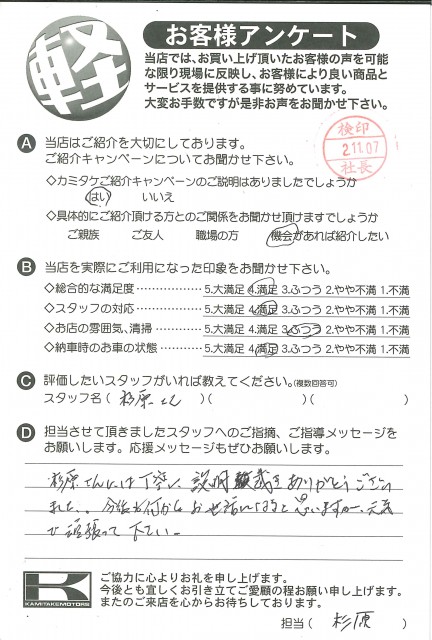 軽
お客様アンケート
当店では、お買い上げ頂いたお客様の声を可能
な限り現場に反映し、お客様により良い商品と
サービスを提供する事に努めています。
大変お手数ですが是非お声をお聞かせ下さい。
検印
2.11.07
社長
A 当店はご紹介を大切にしております。
ご紹介キャンペーンについてお聞かせ下さい。
◇カミタケご紹介キャンペーンのご説明はありましたでしょうか
はい いいえ
◇具体的にご紹介頂ける方とのご関係をお聞かせ頂けますでしょうか
ご親族 ご友人 職場の方 機会があれば紹介したい
B 当店を実際にご利用になった印象をお聞かせ下さい。
◇総合的な満足度 5.大満足 4.満足 3.ふつう 2.やや不満 1.不満
◇スタッフの対応 5.大満足 4.満足 3.ふつう 2.やや不満 1.不満
◇お店の雰囲気、清掃 5.大満足 4.満足 3.ふつう 2.やや不満 1.不満
◇納車時のお車の状態 5.大満足 4.満足 3.ふつう 2.やや不満 1.不満
C 評価したいスタッフがいれば教えてください。(複数回答可)
スタッフ名( 杉原さん )( )( )
D 担当させて頂きましたスタッフへのご指摘、ご指導メッセージを
お願いします。応援メッセージもぜひお願いします。
杉原さんには丁寧に説明 ありがとうござい
ました。今後も何かとお世話になると思いますが、元気
で頑張って下さい。
K
KAMITAKEMOTORS
ご協力に心よりお礼を申し上げます。
今後とも宜しくお引き立てご愛顧の程お願い申し上げます。
またのご来店を心からお待ちしております。
担当( 杉原 )